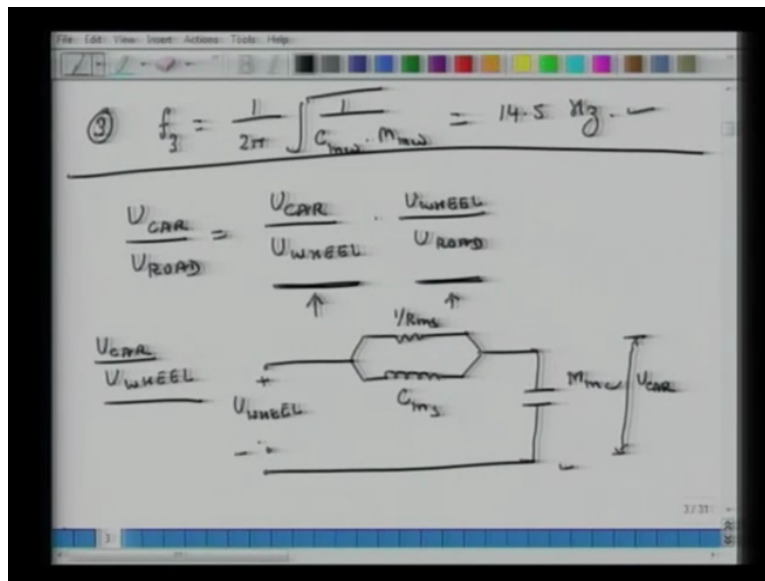 File Edit View Insert Actions Tools Help
③ f₃ = 1/2π √(1/(C_mw · M_mw)) = 14.5 Hz.
U_CAR/U_ROAD = U_CAR/U_WHEEL · U_WHEEL/U_ROAD
1/Rms
U_CAR/U_WHEEL
+
U_WHEEL
C_ms
M_mc
U_CAR
-
3 / 31
3